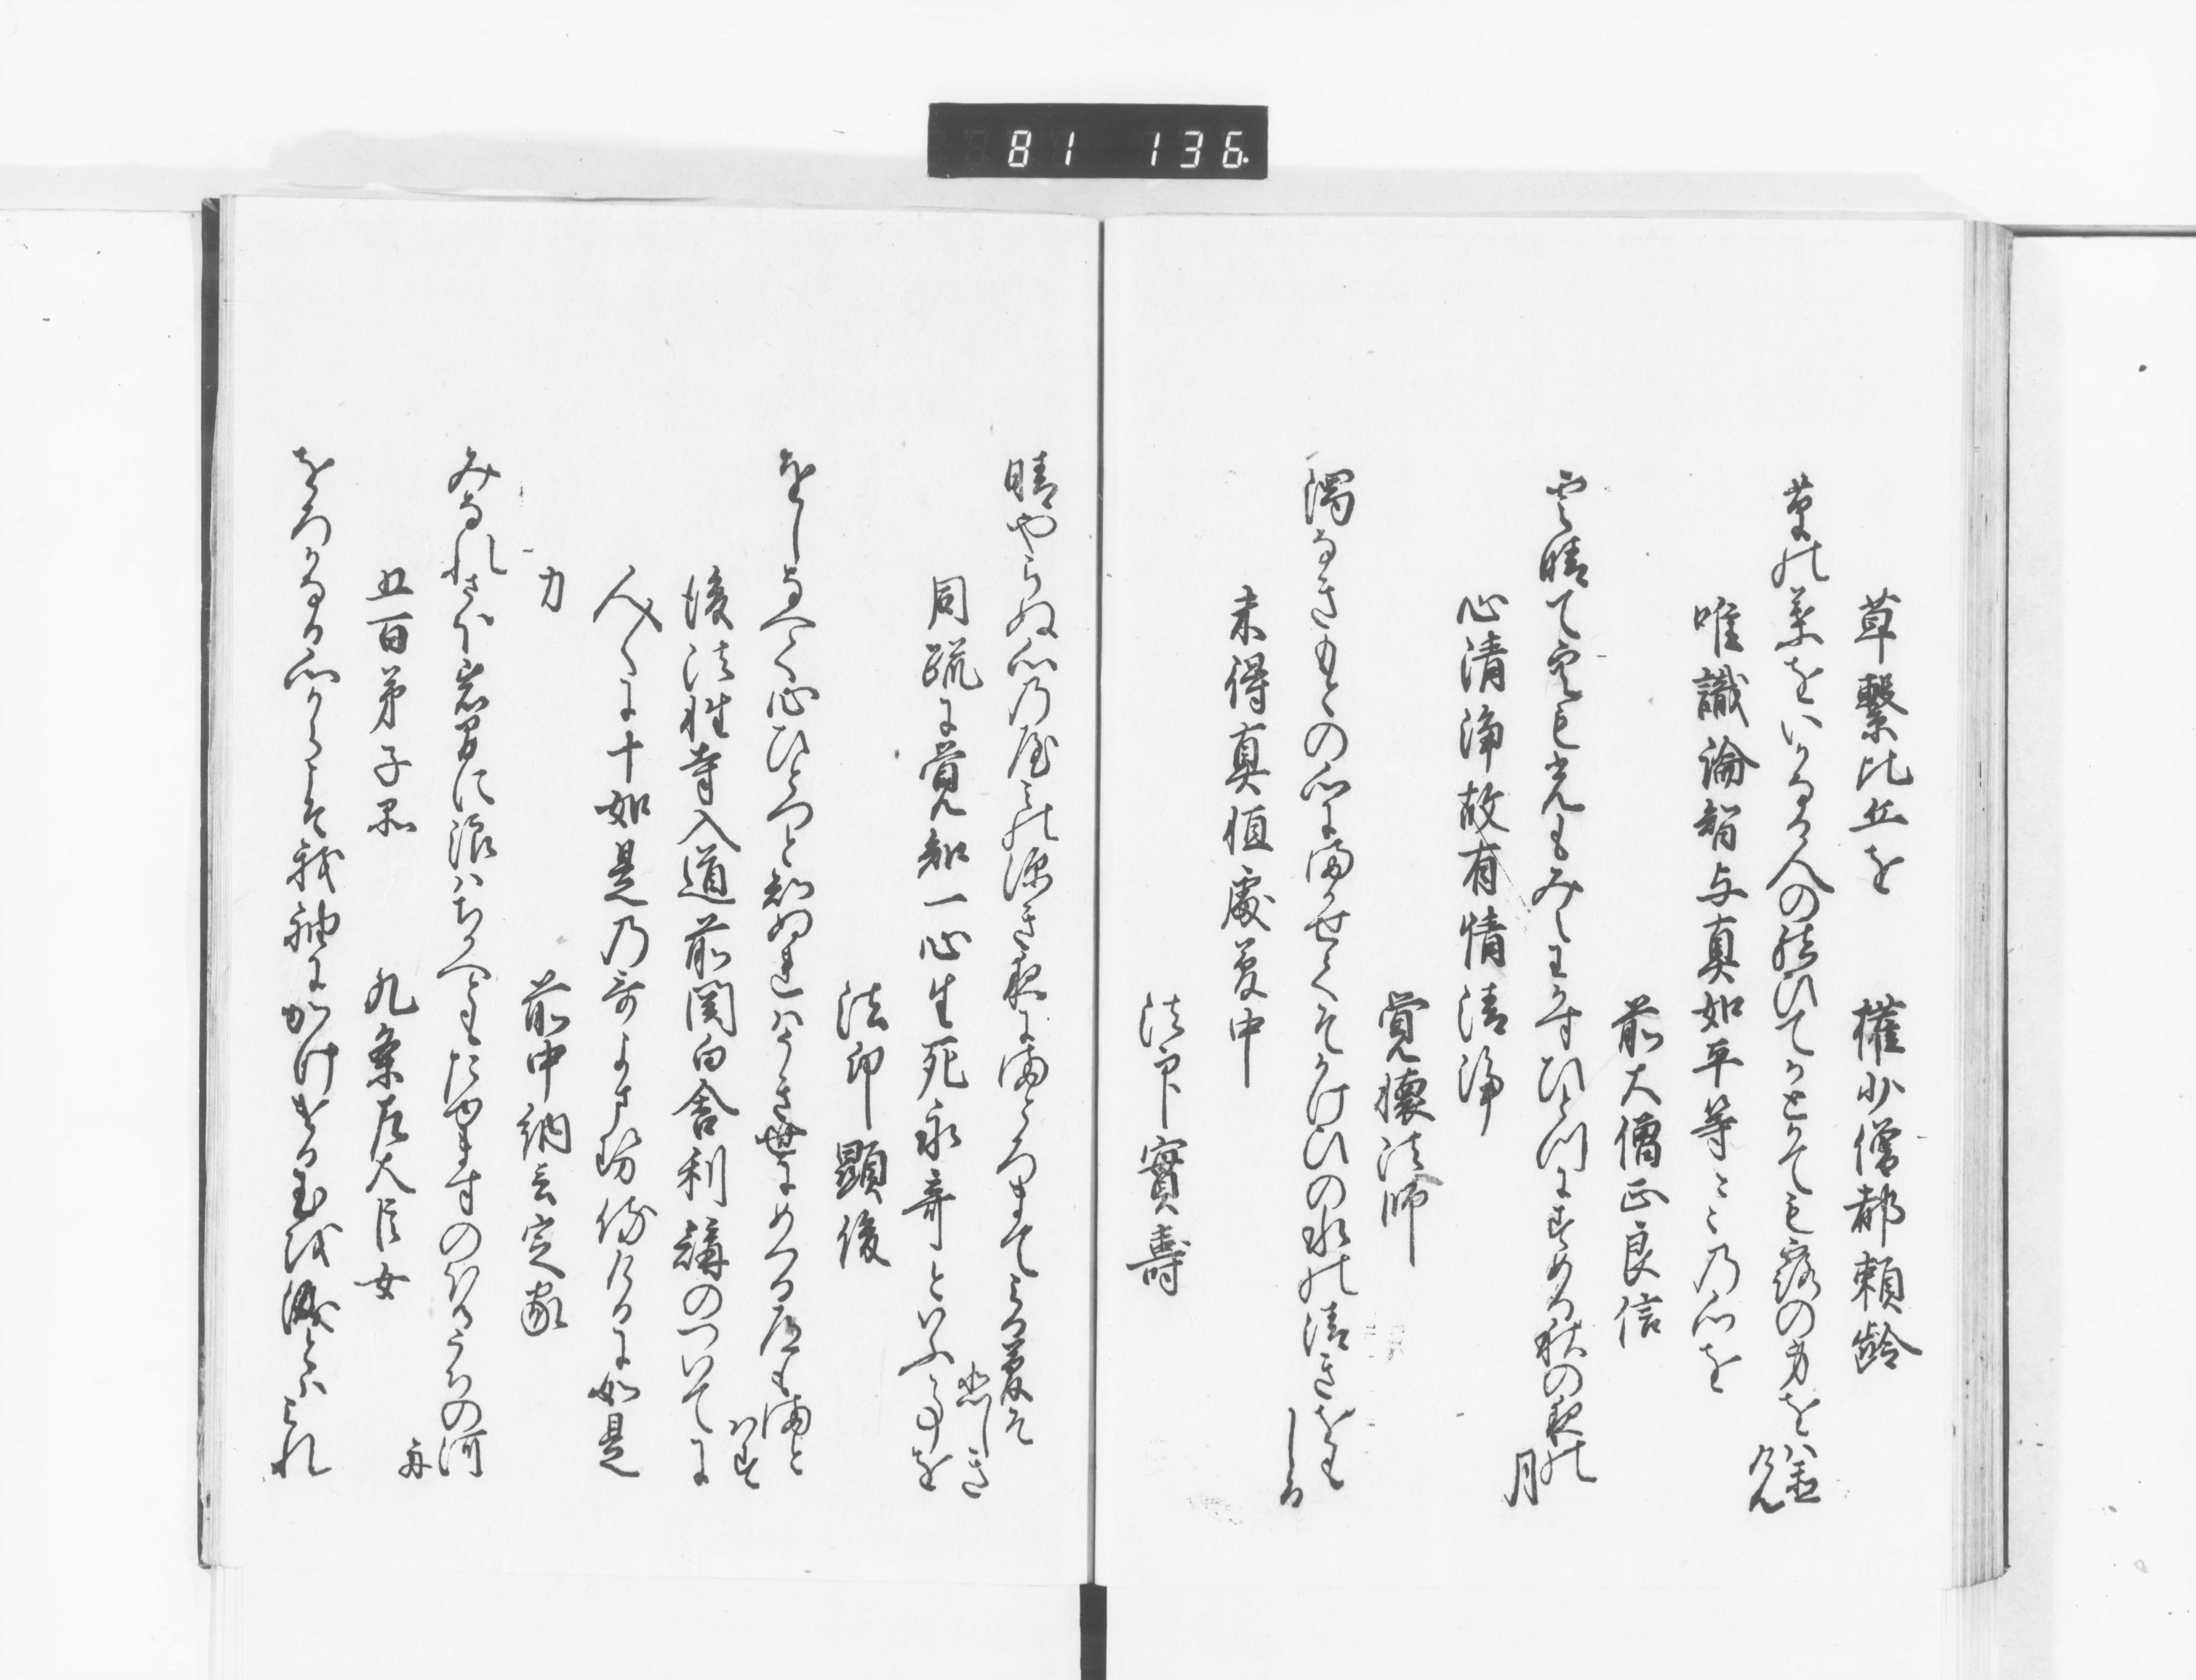 81 136
草繋比丘を　権少僧都頼齢
草の葉をいかなる人の結ひてかとかても露の身をは金けん
唯識論智与真如平等ゝゝ乃心を
前大僧正良信
雲晴て空も光もみえわかすひとつにすめる秋の夜の月
心清浄故有情清浄
覚懐法師
濁なきもとの心にまかせてそかけひの水の清きをもしる
未得真恒處夢中
法印實壽
晴やらぬ心の
夜にまとろまてみる夢そ悲しき
同疏に覚知一心生死永弃といふ事を
法印顕俊
をしなへて心ひとつと知ぬれはうき世にめくる道もまとはす
後法性寺入道前関白舎利講のついてに
人々に十如是乃哥よませ侍けるに如是
力
前中納言定家
みなれさほ岩間に浪はちかへともたゆますのほるうちの河舟
五百弟子品
九条左大臣女
をろかなる心からこそ我袖にかけける玉を
しられ